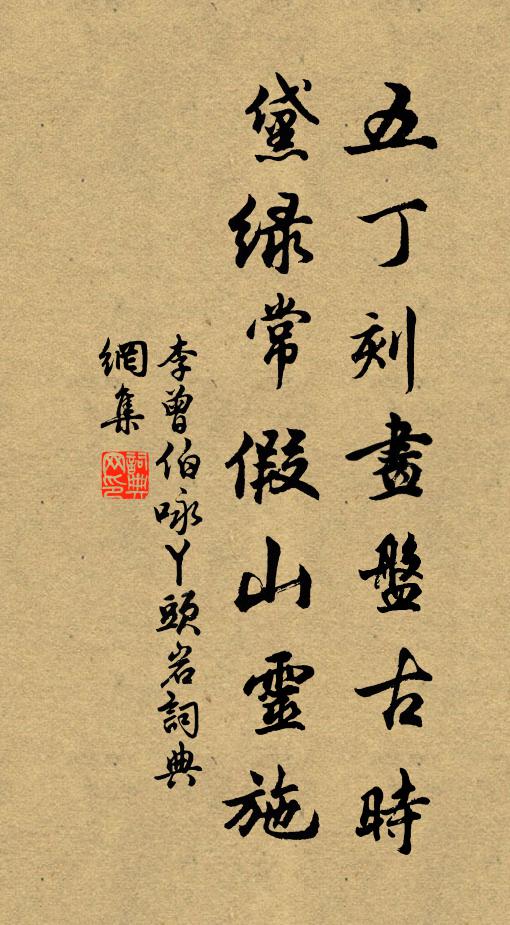 五丁刻畫盤古時
黛綠常假山靈施
李曾伯咏丫頭岩詞典
網集
詞典
网印